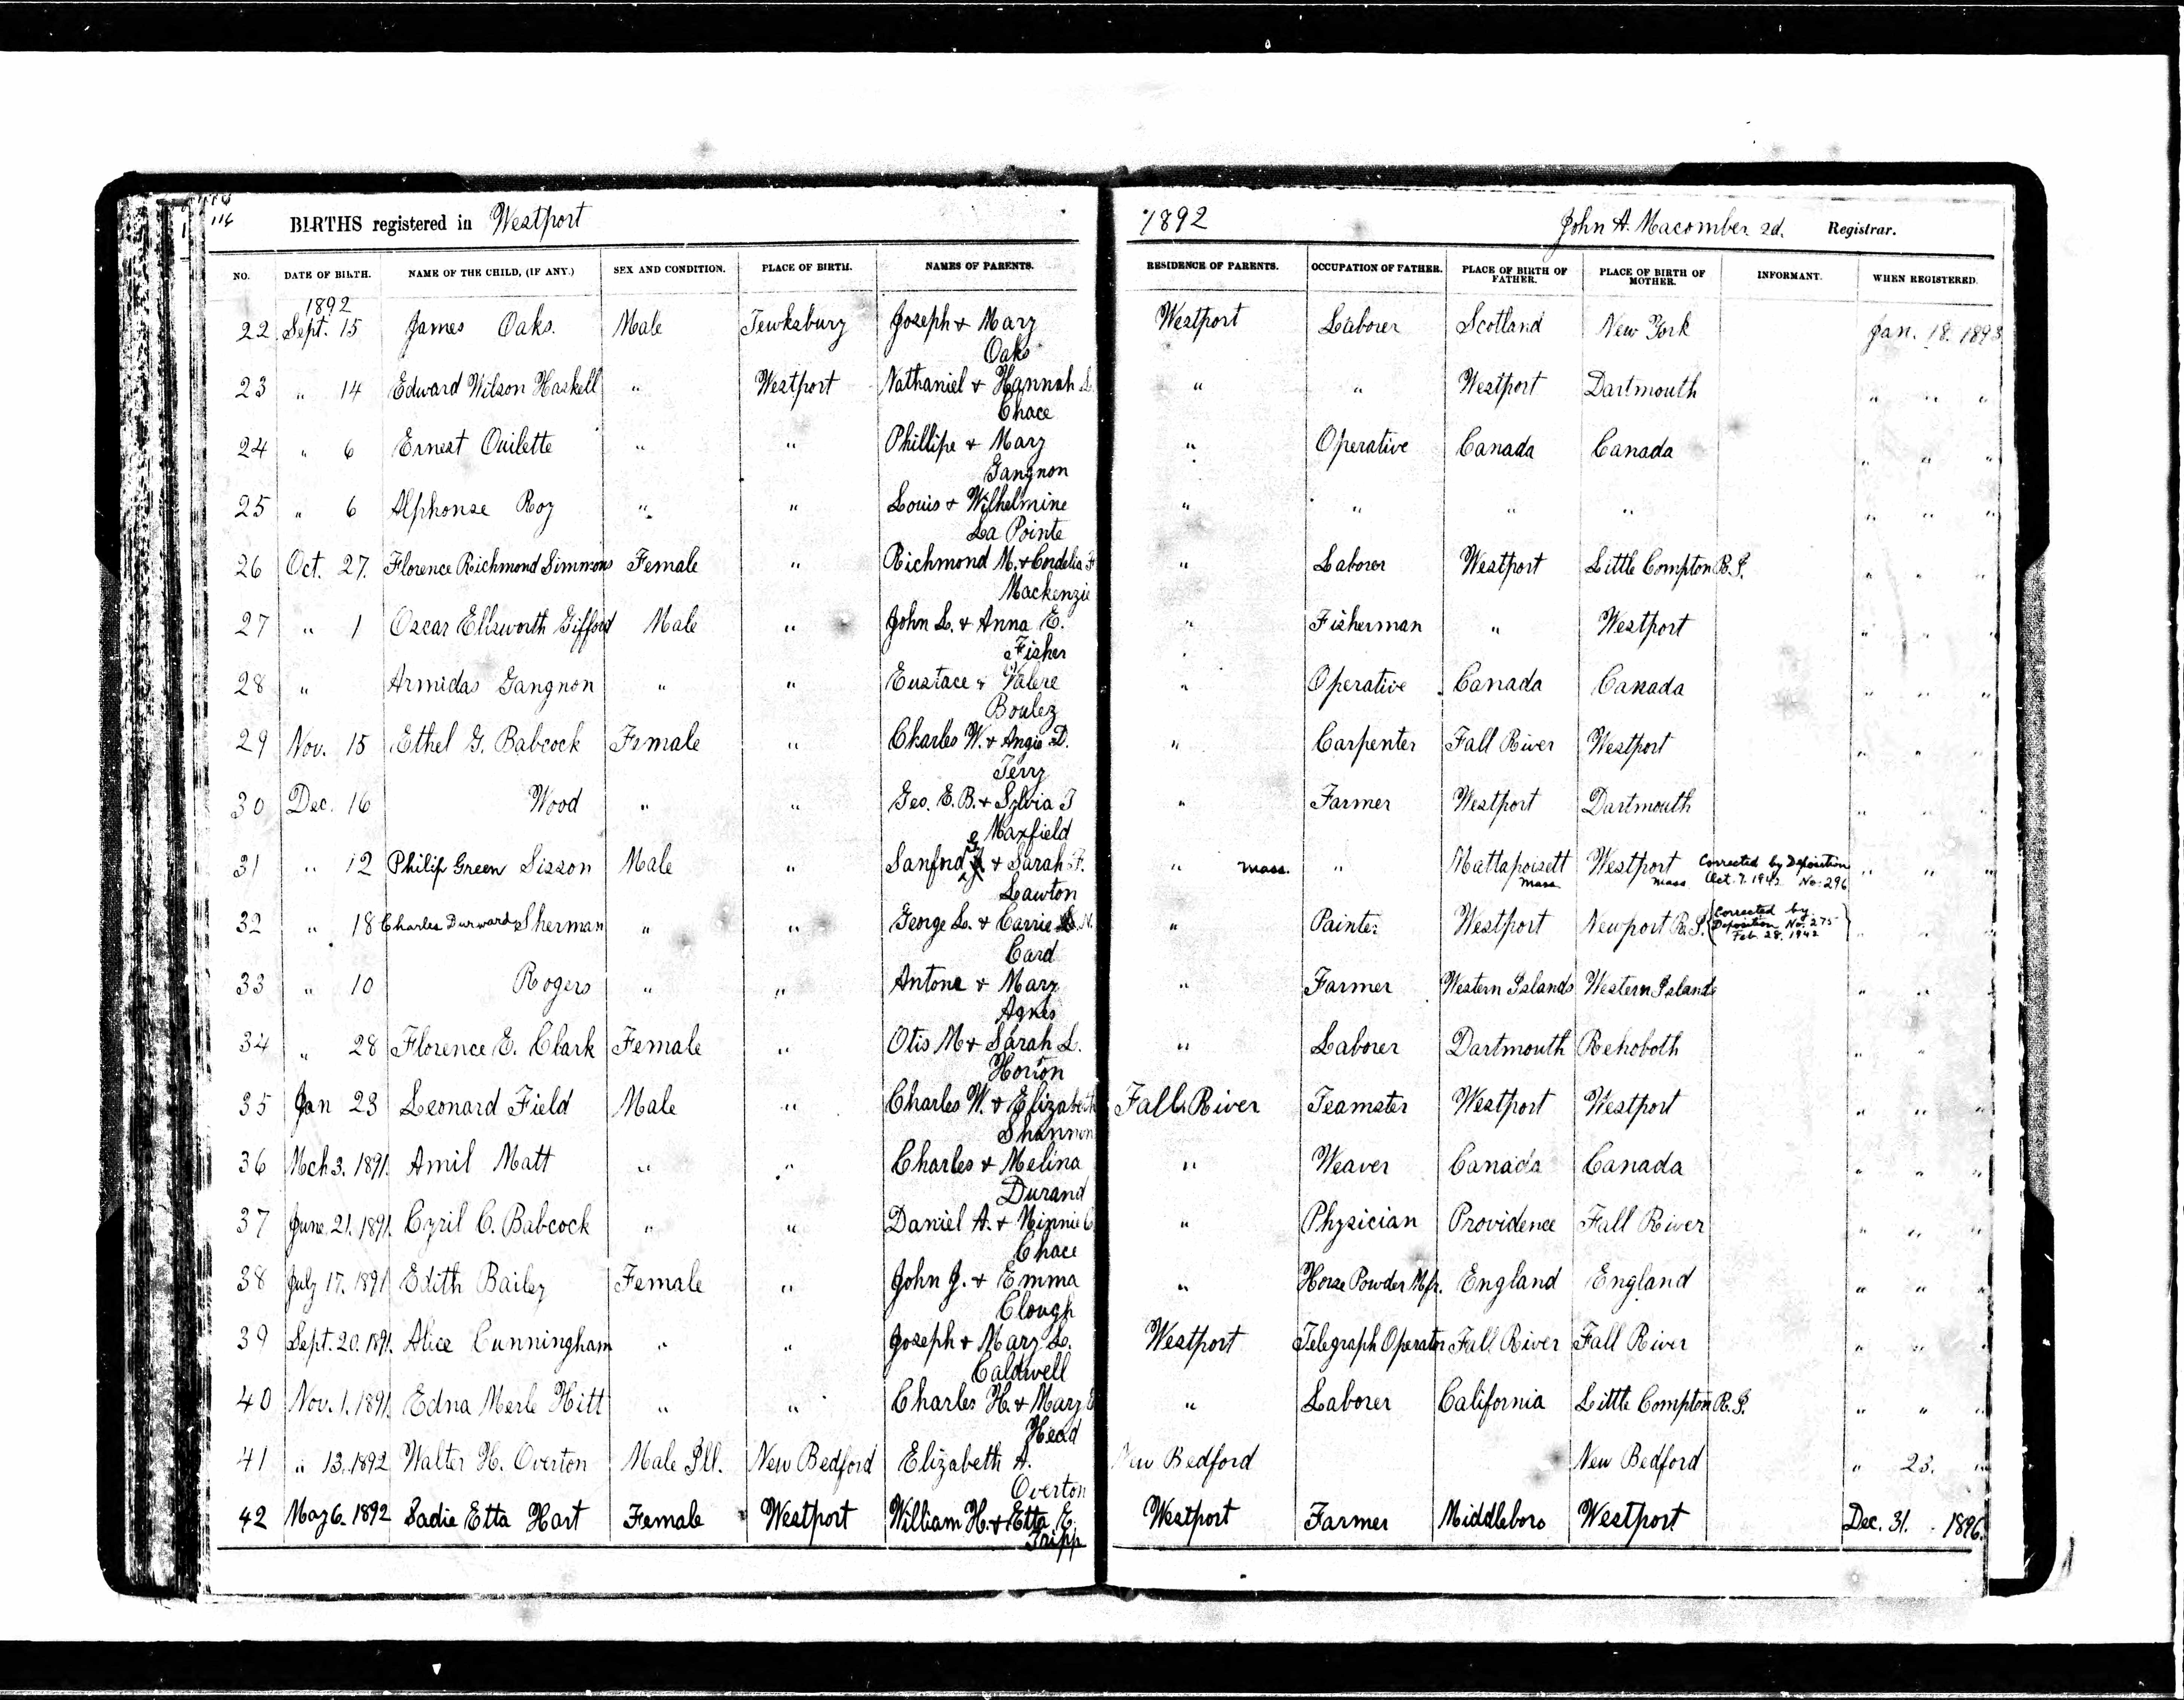 116
BIRTHS registered in Westport
1892
John A. Macomber 2d. Registrar.
NO. DATE OF BIRTH. NAME OF THE CHILD, (IF ANY.) SEX AND CONDITION. PLACE OF BIRTH. NAMES OF PARENTS. RESIDENCE OF PARENTS. OCCUPATION OF FATHER. PLACE OF BIRTH OF FATHER. PLACE OF BIRTH OF MOTHER. INFORMANT. WHEN REGISTERED.
1892
22 Sept. 15 James Oaks. Male Tewksbury Joseph & Mary Westport Laborer Scotland New York Jan. 18. 1893
Oaks
23 " 14 Edward Wilson Haskell " Westport Nathaniel & Hannah L. " " Westport Dartmouth " " "
Chace
24 " 6 Ernest Ouilette " " Phillipe & Mary " Operative Canada Canada " " "
Gangnon
25 " 6 Alphonse Roy " " Louis & Wilhelmine " " " " " " "
La Pointe
26 Oct. 27. Florence Richmond Simmons Female " Richmond M. & Cordelia F " Laborer Westport Little Compton R.I. " " "
Mackenzie
27 " 1 Oscar Ellsworth Gifford Male " John L. & Anna E. " Fisherman " Westport " " "
Fisher
28 " Armidas Gangnon " " Eustace & Valere " Operative Canada Canada " " "
Boulez
29 Nov. 15 Ethel G. Babcock Female " Charles W. & Angie D. " Carpenter Fall River Westport " " "
Terry
30 Dec. 16 Wood " " Geo. E. B. & Sylvia T " Farmer Westport Dartmouth " " "
Maxfield
31 " 12 Philip Green Sisson Male " Sanford & Sarah F. " Mass. " Mattapoisett Mass. Westport Mass. Corrected by Deposition Oct. 7. 1943 No. 296 " " "
Lawton
32 " 18 Charles Durward Sherman " " George L. & Carrie N. " Painter Westport Newport R.I. Corrected by Deposition No. 275 Feb. 28, 1942 " " "
Card
33 " 10 Rogers " " Antone & Mary " Farmer Western Islands Western Islands " " "
Agnes
34 " 28 Florence E. Clark Female " Otis M & Sarah L. " Laborer Dartmouth Rehoboth " " "
Horton
35 Jan 23 Leonard Field Male " Charles W. & Elizabeth Fall River Teamster Westport Westport " " "
Shannon
36 Mch 3. 1891. Amil Matt " " Charles & Melina " Weaver Canada Canada " " "
Durand
37 June 21. 1891. Cyril C. Babcock " " Daniel A. & Minnie C " Physician Providence Fall River " " "
Chace
38 July 17. 1891 Edith Bailey Female " John J. & Emma " Horse Powder Mfr. England England " " "
Clough
39 Sept. 20. 1891. Alice Cunningham " " Joseph & Mary L. Westport Telegraph Operator Fall River Fall River " " "
Caldwell
40 Nov. 1. 1891. Edna Merle Hitt " " Charles H. & Mary " Laborer California Little Compton R.I. " " "
Head
41 " 13. 1892 Walter H. Overton Male Ill. New Bedford Elizabeth A. New Bedford New Bedford " 23. "
Overton
42 May 6. 1892 Sadie Etta Hart Female Westport William H. & Etta E. Westport Farmer Middleboro Westport Dec. 31. 1896.
Tripp